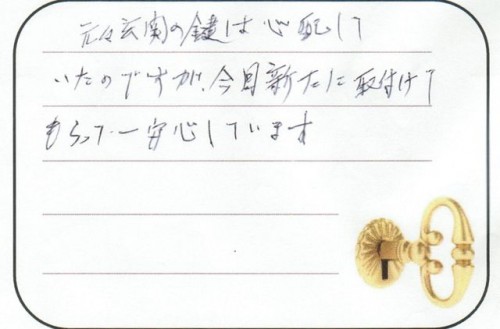 元々玄関の鍵は心配して
いたのですが、今回新たに取付けて
もらって一安心しています